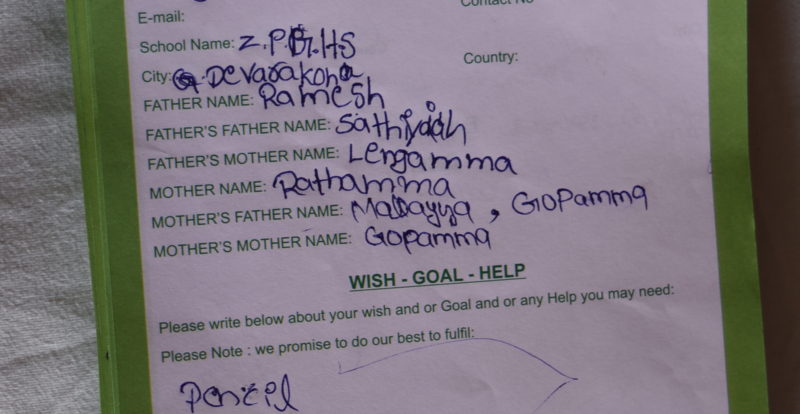 E-mail:
Contact No
School Name: Z.P.G.HS
City: Devarakonda
Country:
FATHER NAME: Ramesh
FATHER'S FATHER NAME: Sathiyaiah
FATHER'S MOTHER NAME: Lengamma
MOTHER NAME: Rathamma
MOTHER'S FATHER NAME: Madayya, Gopamma
MOTHER'S MOTHER NAME: Gopamma
WISH - GOAL - HELP
Please write below about your wish and or Goal and or any Help you may need:
Please Note : we promise to do our best to fulfil:
Pencil